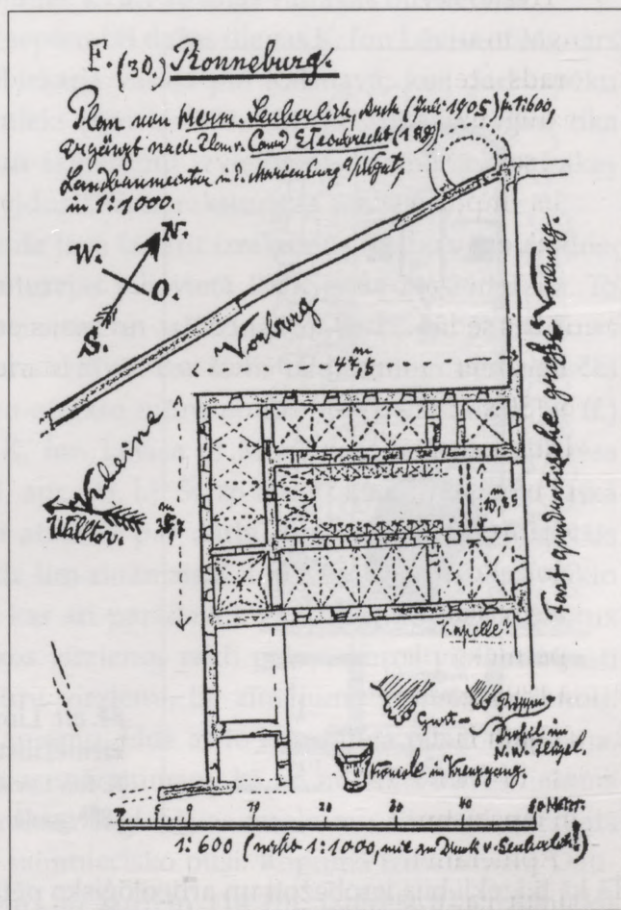 F. (30.) Ronneburg.
Plan von Herm. Seuberlich, Druck (Juli 1905) 1:600,
Ergänzt nach Plan v. Conrad Steinbrecht (1887)
Landbaumeister in d. Marienburg a/Nogat,
im 1:1000.
N.
W.
O.
S.
← Vorburg
44,5 m
Fast quadratische große Vorburg.
Wolltor.
m
10,85
Kapelle.
Gurt-
Rippen
Profil im
Flügel.
Konsole im Kreuzgang.
5 0 10 20 30 40 50 Mètr.
1:600 (nicht 1:1000, wie im Druck v. Seuberlich!)